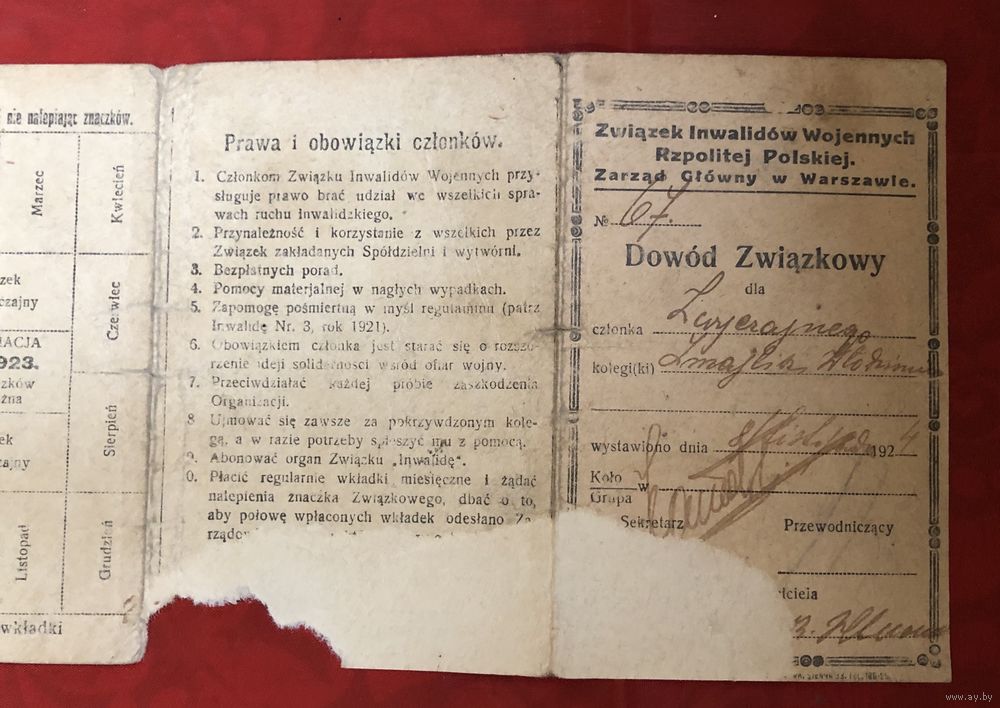 nie nalepiając znaczków.
Marzec
Kwiecień
Czerwiec
923.
Sierpień
Listopad
Grudzień
wkładki
Prawa i obowiązki członków.
1. Członkom Związku Inwalidów Wojennych przy-
sługuje prawo brać udział we wszelkich spra-
wach ruchu Inwalidzkiego.
2. Przynależność i korzystanie z wszelkich przez
Związek zakładanych Spółdzielni i wytwórni.
3. Bezpłatnych porad.
4. Pomocy materjalnej w nagłych wypadkach.
5. Zapomogę pośmiertną w myśl regulaminu (patrz
Inwalidę Nr. 3, rok 1921).
6. Obowiązkiem członka jest starać się o rozsze-
rzenie ideji solidarności wśród ofiar wojny.
7. Przeciwdziałać każdej próbie zaszkodzenia
Organizacji.
8 Ujmować się zawsze za pokrzywdzonym kole-
gą, a w razie potrzeby spieszyć mu z pomocą.
9. Abonować organ Związku „Inwalidę".
0. Płacić regularnie wkładki miesięczne i żądać
nalepienia znaczka Związkowego, dbać o to,
aby połowę wpłaconych wkładek odesłano Za-
Związek Inwalidów Wojennych
Rzpolitej Polskiej.
Zarząd Główny w Warszawie.
№ 67.
Dowód Związkowy
dla
członka Zwyczajnego
kolegi(ki)
wystawiono dnia 8 Listopada 1924
Koło
w
Grupa
Sekretarz Przewodniczący
www.ay.by